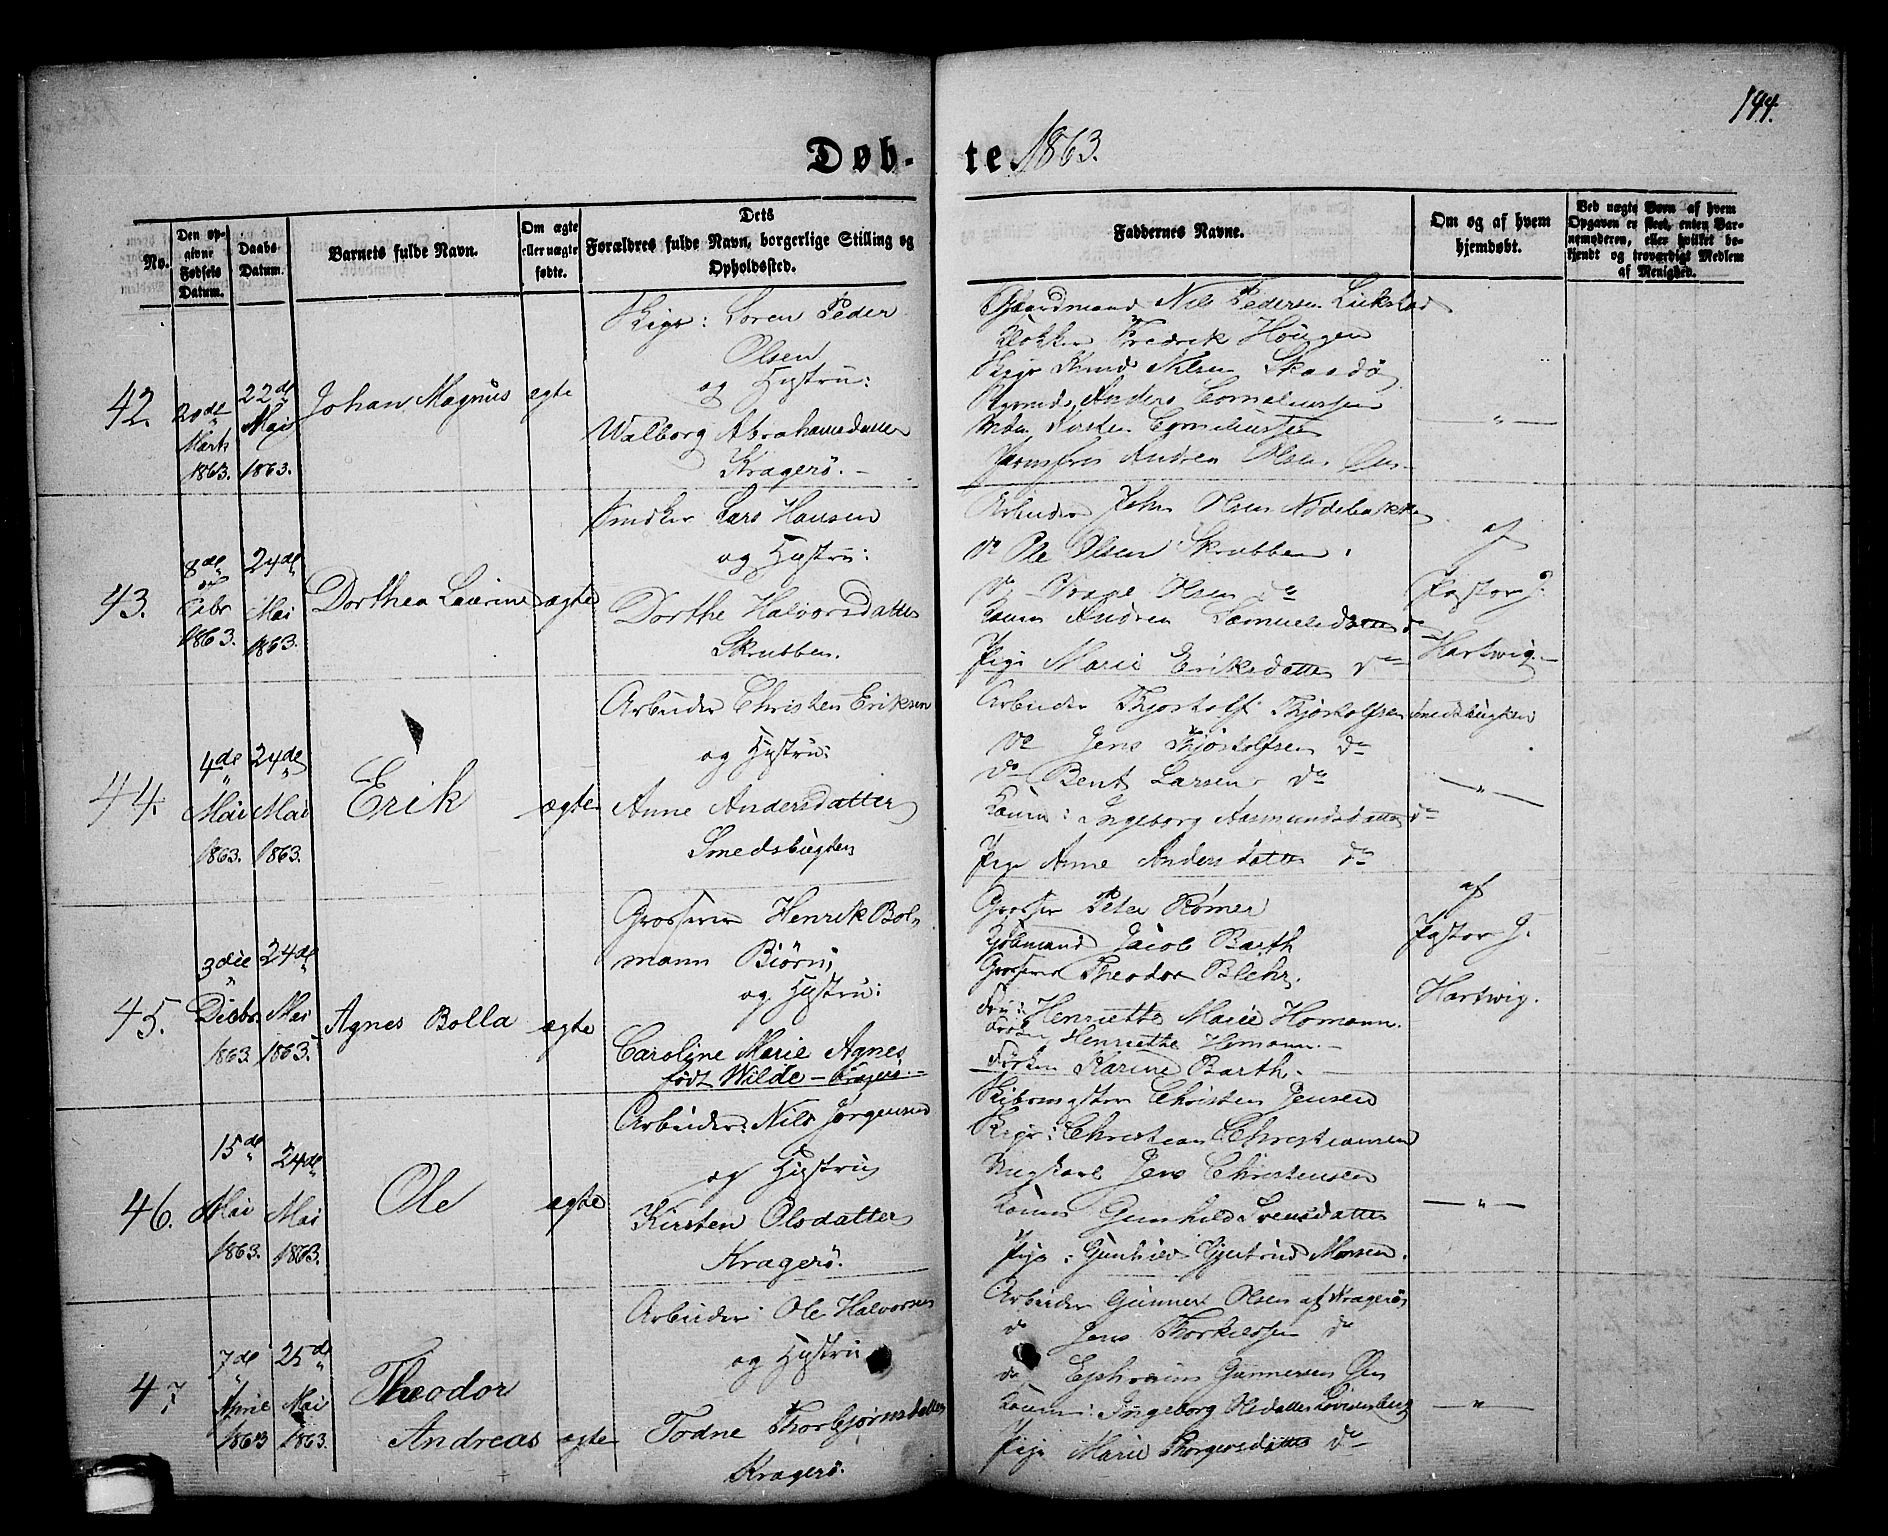 144.
Døb- te 1863.
No.
Den opgivne Fødsels Datum.
Daabs-Datum.
Barnets fulde Navn.
Om ægte eller uægte fødte.
Dets Forældres fulde Navn, borgerlige Stilling og Opholdssted.
Faddernes Navne.
Om og af hvem hjemdøbt.
Ved uægte Børn af hvem Opgaven er skeet, enten Barnemoderen, eller hvilket bekjendt og troværdigt Medlem af Menighed.
42.
Marts
1863.
22de
Mai
1863.
Johan Magnus
ægte
Soren Peder
Olsen
og Hustru:
Walborg Abrahamsdatter
Kragerø. -
Nils Pedersen
Fredrik Hougen
Knud Nilsen Skaadø
Anders Corneliussen
Andrea Olsen
— „ —
43.
8de
1863.
24de
Mai
1863.
Dorthea Laurine
ægte
Lars Hansen
og Hustru:
Dorthe Halvorsdatter
Skrubben.
Arbeider John Olsen
do Ole Olsen Skrubben
do Olsen do
Andrea Samuelsdatter do
Pige Marie Eriksdatter do
af
Pastor J.
Hartwig.
44.
4de
Mai
1863.
24de
Mai
1863.
Erik
ægte
Arbeider Christen Eriksen
og Hustru:
Anne Andersdatter
Smedsbugten
Arbeider Thjostolf Thjostolfsen Smedsbugten
do Jens Thjostolfsen do
do Bent Larsen do
Kone: Ingeborg Aasmundsdatter do
Pige Anne Andersdatter do
— „ —
45.
3die
1863.
24de
Mai
1863.
Agnes Bolla
ægte
Grosserer Henrik Bol-
mann Biørn
og Hustru:
Caroline Marie Agnes
født Wilde - Kragerø. -
Grosserer Peter Rømer
Jacob Barth
Grosserer Theodor Blehr.
Fru: Henriette Marie Homann.
Henriette Homann. -
Frøken Karine Barth. -
af
Pastor J.
Hartwig.
46.
15de
Mai
1863.
24de
Mai
1863.
Ole
ægte
Arbeider: Nils Jørgensen
og Hustru
Kirsten Olsdatter
Kragerø.
Christen Jensen
Christian Christiansen
Jens Christensen
Kone Gunhild Svensdatter
Pige: Gunhild Gjertrud
— „ —
47.
7de
April
1863
25de
Mai
1863.
Theodor
Andreas
ægte
Arbeider: Ole Halvorsen
og Hustru
Todne Thorbjørnsdatter
Kragerø.
Arbeider Gunner Olsen af Kragerø
do Jens Thorkildsen do
do Ephraim Gunnersen
Kone: Ingeborg Olsdatter
Pige Marie Thorgersdatter do
— „ —